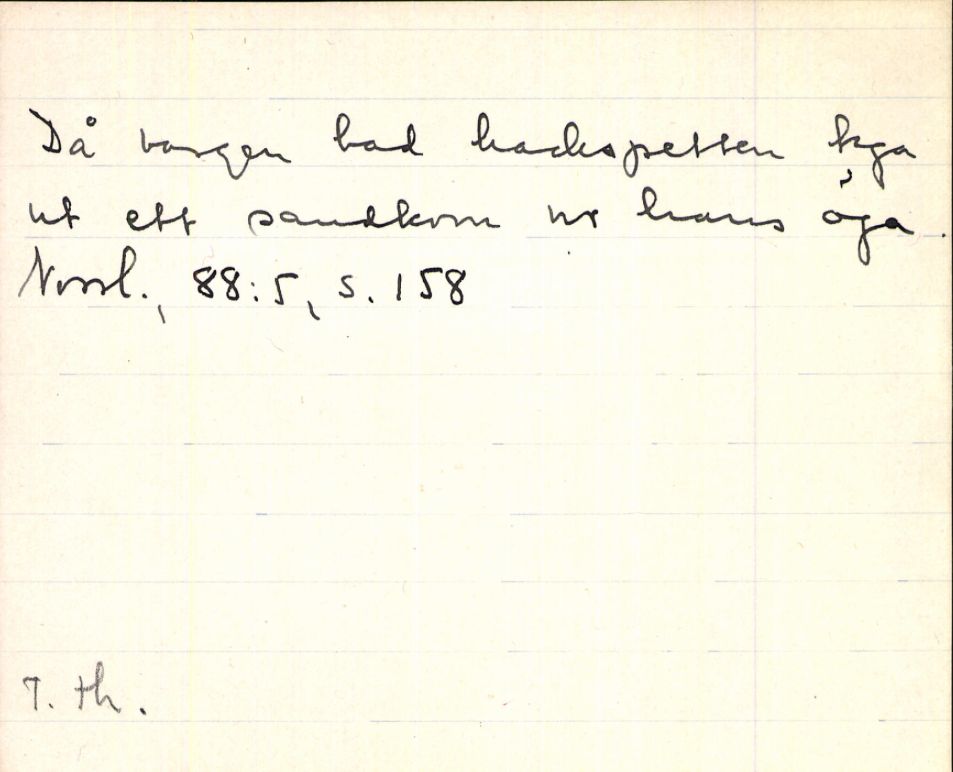 Då vargen bad hackspetten taga
ut ett sandkorn ur hans öga.
Norrl., 88:5, s. 158
T. th.